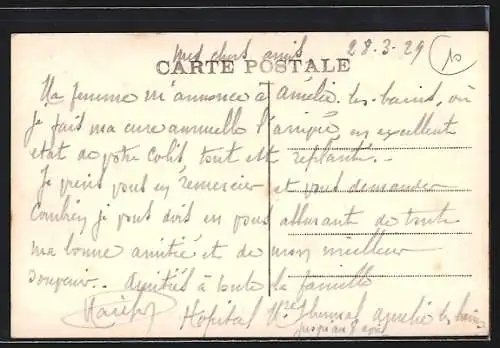 mes chers amis 28-3-29
10
CARTE POSTALE
Ma femme m'annonce à Amélie-les-bains, où
Je fais ma cure annuelle l'arrivée, en excellent
état de votre colis, tout est replanté.-
Je viens vous en remercier et vous demander
Combien je vous dois en vous assurant de toute
ma bonne amitié et de mon meilleur
souvenir.. Amitiés à toute la famille
Hôpital thermal Amélie les bains
jusqu'au 8 avril